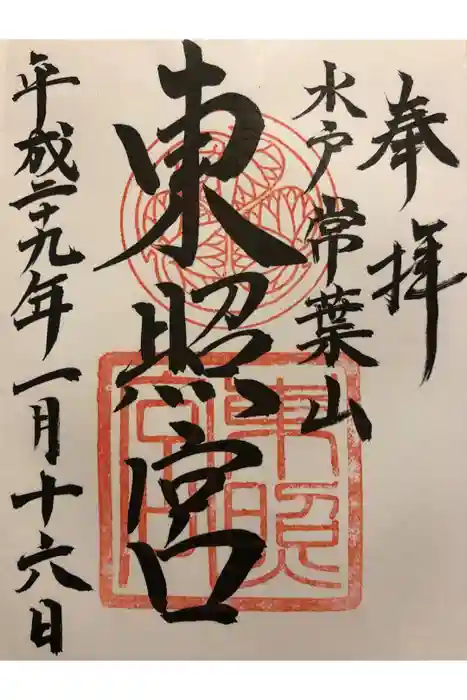 奉拝
水戸常葉山
東照宮
平成二十九年一月十六日
東照宮印